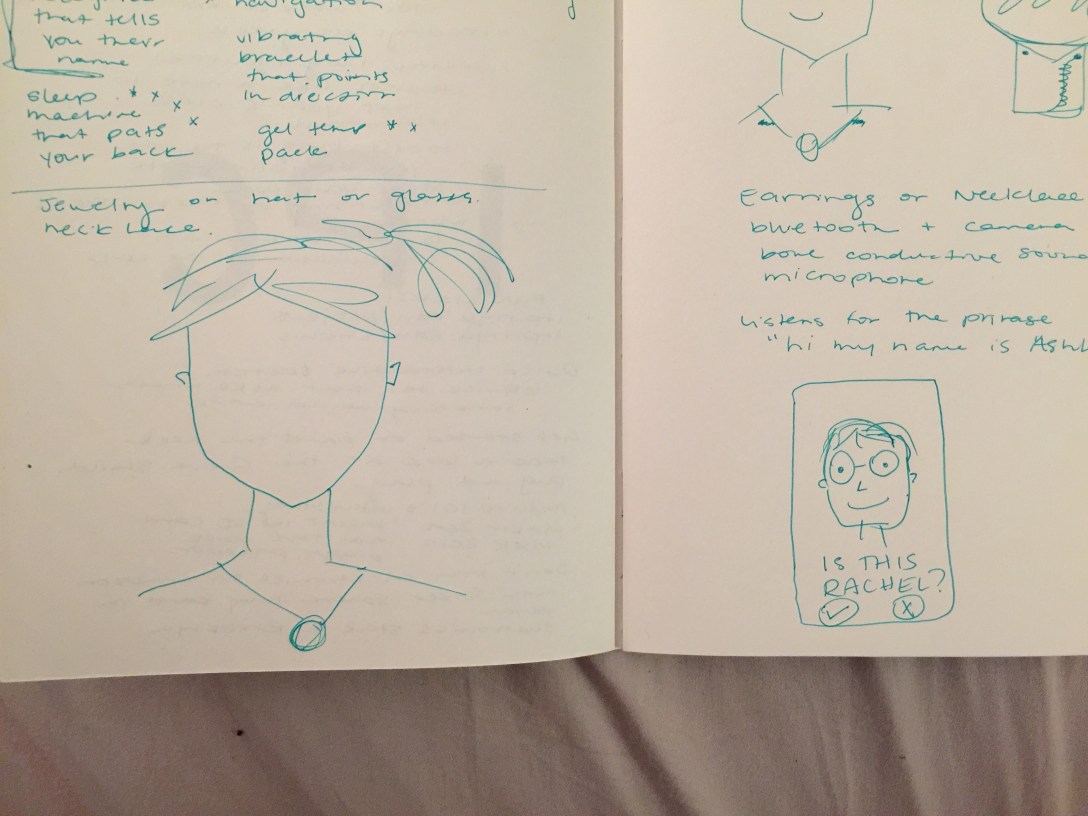 that tells
you their
name
sleep
machine
that pats
your back
navigation
vibrating
bracelet
that points
in direction
gel temp
pack
Jewelry or hat or glasses.
necklace.
Earrings or Necklace
bluetooth + camera
bone conductive sound
microphone
Listens for the phrase
"hi my name is Ashl
IS THIS
RACHEL?